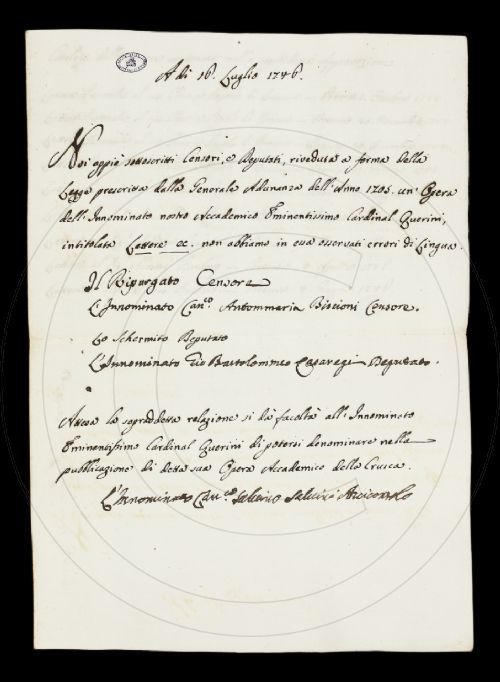 A dì 16. Luglio 1746.
Noi appiè sottoscritti Censori, e Deputati, riveduta a forma della
Legge prescritta dalla Generale Adunanza dell'Anno 1705. un'Opera
dell'Innominato nostro Accademico Eminentissimo Cardinal Querini,
intitolata Lettere ec. non abbiamo in essa osservati errori di Lingua.
Il Ripurgato Censore
L'Innominato Can.co Antommaria Biscioni Censore.
Lo Schermito Deputato
L'Innominato Gio Bartolommeo Casaregi Deputato.
Attesa la sopraddetta relazione si dà facoltà all'Innominato
Eminentissimo Cardinal Querini di potersi denominare nella
pubblicazione di detta sua Opera Accademico della Crusca.
L'Innominato Can.co Salvino Salvini Arciconsolo